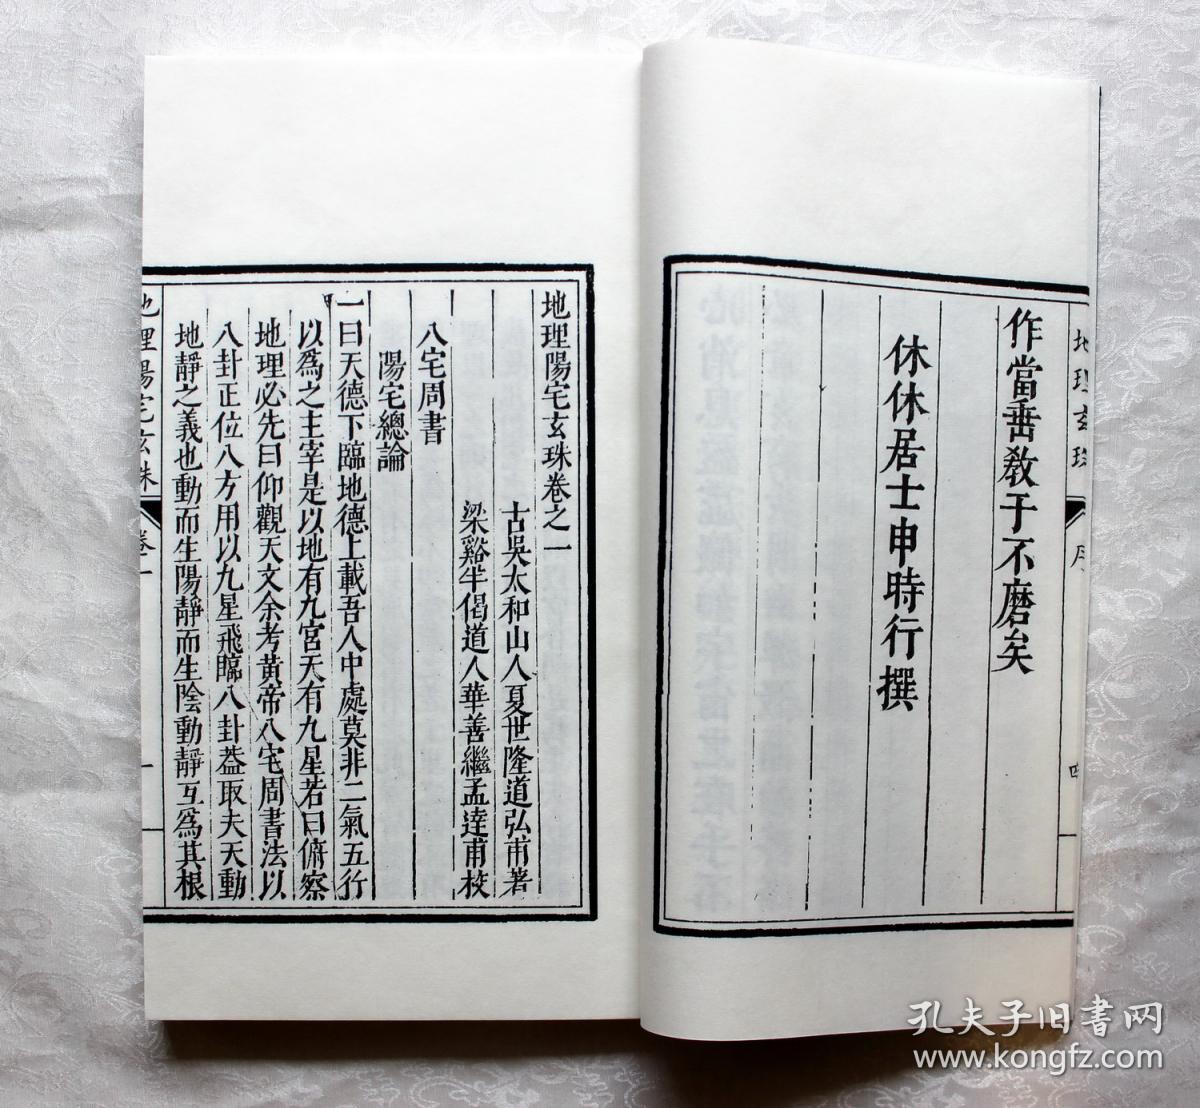 作當垂教于不磨矣
休休居士申時行撰
地理玄珠
序
四
地理陽宅玄珠卷之一
古吳太和山人夏世隆道弘甫著
梁谿半偈道人華善繼孟達甫校
八宅周書
陽宅總論
一曰天德下臨地德上載吾人中處莫非二氣五行
以爲之主宰是以地有九宮天有九星若曰俯察
地理必先曰仰觀天文余考黃帝八宅周書法以
八卦正位八方用以九星飛臨八卦葢取夫天動
地靜之義也動而生陽靜而生陰動靜互爲其根
地理陽宅玄珠
卷一
一
孔夫子旧书网
www.kongfz.com